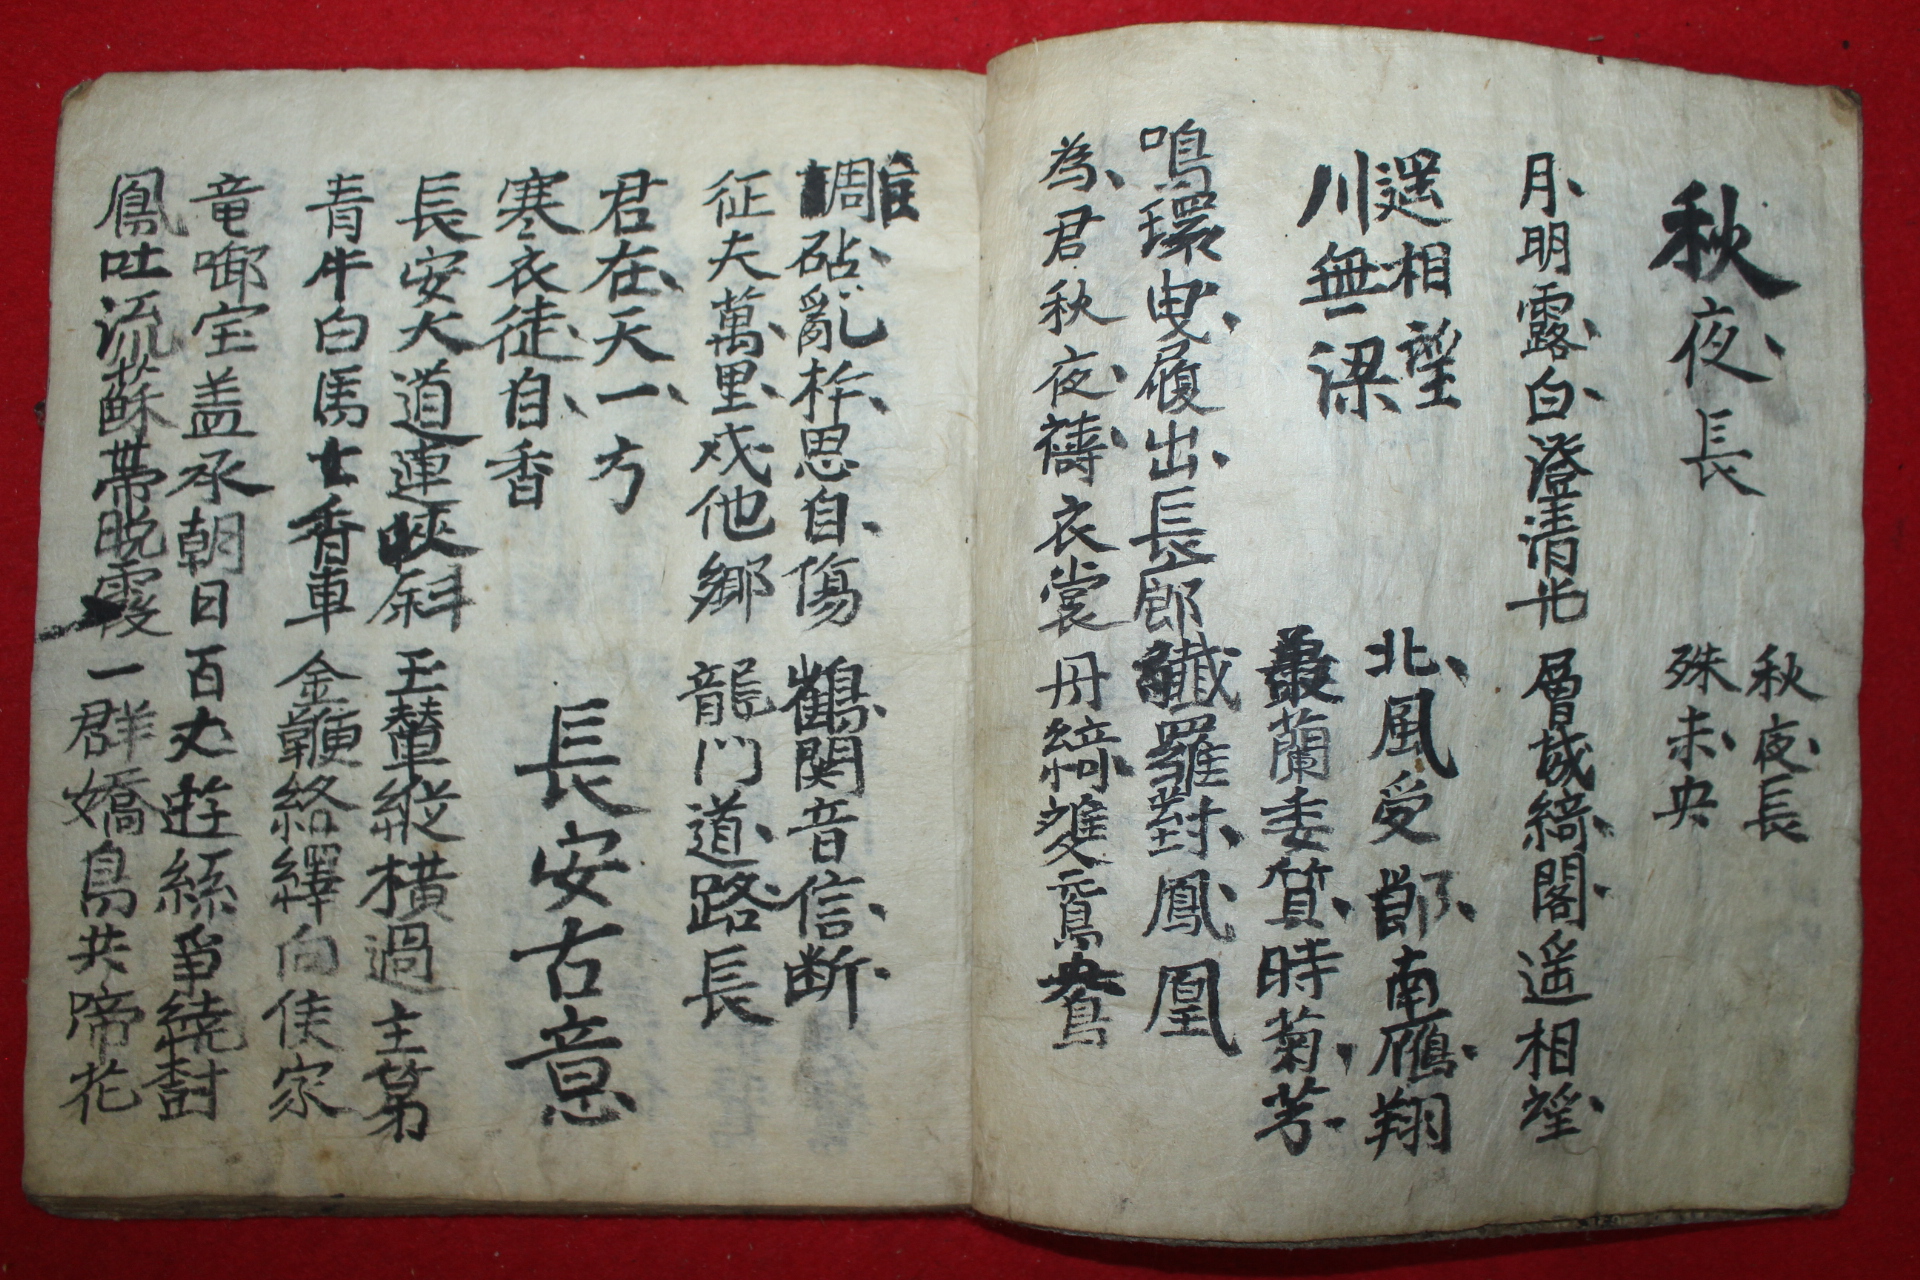 秋夜長
秋夜長
殊未央
月明露白澄清光 層城綺閣遥相望
遥相望
川無梁
北風受節南雁翔
叢蘭委質時菊芳
鳴環曳履出長廊 纖羅對鳳凰
為君秋夜擣衣裳 丹綺雙鴛鴦
調砧亂杵思自傷 鶴関音信断
征夫萬里戍他鄉 龍門道路長
君在天一方
寒衣徒自香
長安古意
長安大道連狹斜 玉輦縱横過主第
青牛白馬七香車 金鞭絡繹向侯家
竜啣宝盖承朝日 百丈遊絲争繞樹
鳳吐流蘇帯晚霞 一群嬌鳥共啼花